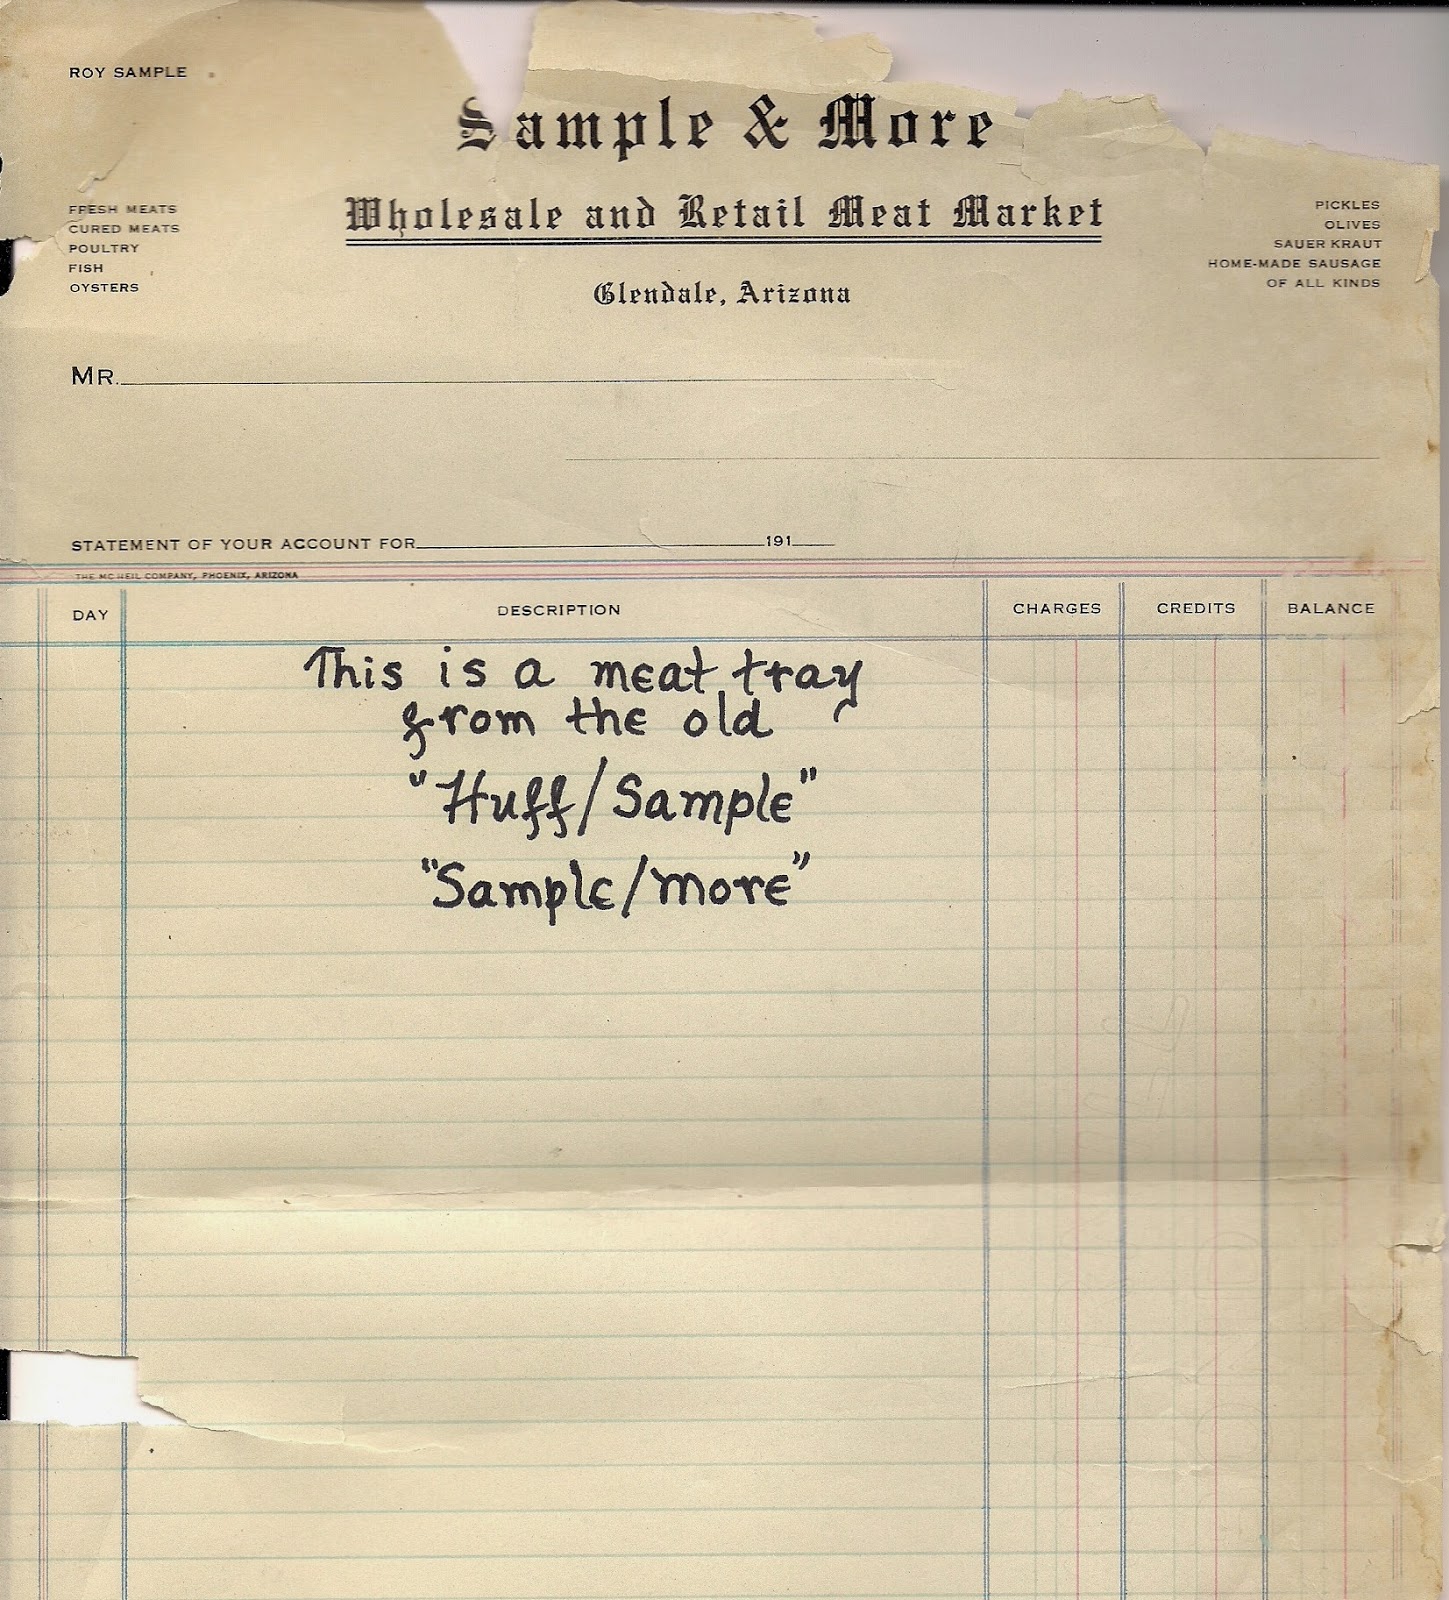 ROY SAMPLE
Sample & More
Wholesale and Retail Meat Market
Glendale, Arizona
FRESH MEATS
CURED MEATS
POULTRY
FISH
OYSTERS
PICKLES
OLIVES
SAUER KRAUT
HOME-MADE SAUSAGE
OF ALL KINDS
MR.
STATEMENT OF YOUR ACCOUNT FOR 191
THE MC NEIL COMPANY, PHOENIX, ARIZONA
DAY DESCRIPTION CHARGES CREDITS BALANCE
This is a meat tray
from the old
"Huff/Sample"
"Sample/more"